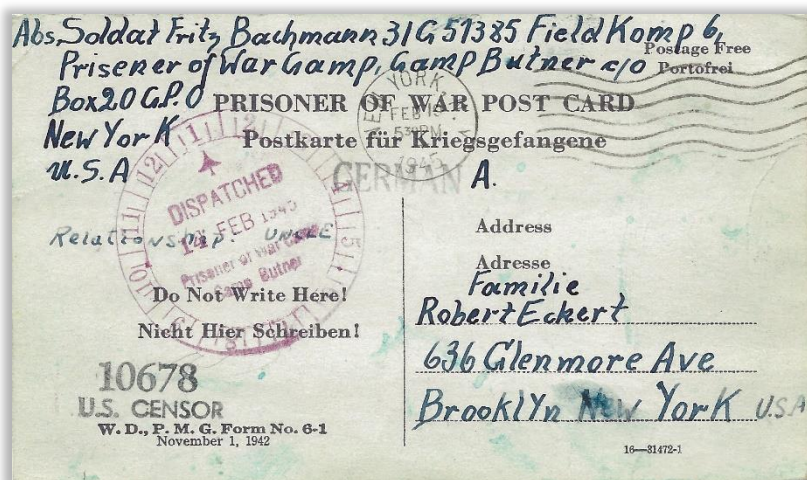 Abs, Soldat Fritz Bachmann 31G51385 Field Komp 6,
Prisener of War Camp, Camp Butner c/o
Postage Free
Portofrei
Box 20 G.P.O
PRISONER OF WAR POST CARD
New York
Postkarte für Kriegsgefangene
U.S.A
NEW YORK, N.Y.
FEB 15
530PM
1945
GERMAN A.
DISPATCHED
14 FEB 1945
Prisoner of War Camp
Camp Butner
Relationship: UNCLE
Do Not Write Here!
Nicht Hier Schreiben!
10678
U.S. CENSOR
W. D., P. M. G. Form No. 6-1
November 1, 1942
Address
Adresse
Familie
Robert Eckert
636 Glenmore Ave
Brooklyn New York U.S.A
16—31472-1